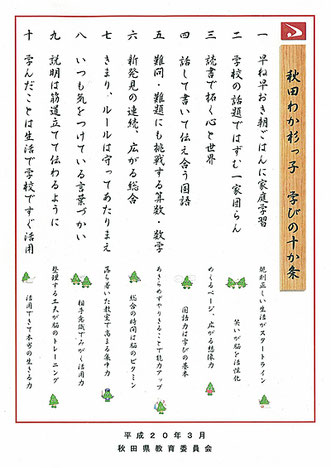 秋田わか杉っ子 学びの十か条
一 早ね早おき朝ごはんに家庭学習
規則正しい生活がスタートライン
二 学校の話題ではずむ一家団らん
笑いが脳を活性化
三 読書で拓く心と世界
めくるページ、広がる想像力
四 話して書いて伝え合う国語
国語力は学びの基本
五 難問・難題にも挑戦する算数・数学
あきらめずやりきることで能力アップ
六 新発見の連続、広がる総合
総合の時間は脳のビタミン
七 きまり、ルールは守ってあたりまえ
落ち着いた教室で高まる集中力
八 いつも気をつけている言葉づかい
相手意識でみがく活用力
九 説明は筋道立てて伝わるように
整理する工夫が脳のトレーニング
十 学んだことは生活で学校ですぐ活用
活用できて本当の生きる力
平成20年3月
秋田県教育委員会